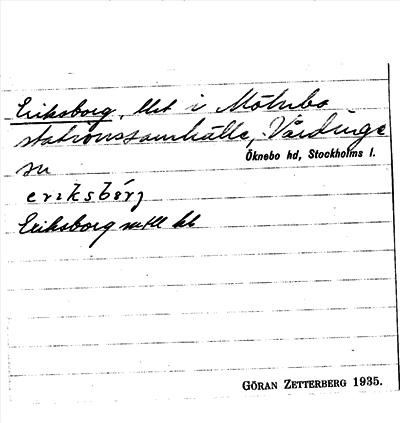 Eriksborg, lht i Mölnbo
stationssamhälle, Vårdinge
sn
Öknebo hd, Stockholms l.
eriksbórj
Eriksborg
GÖRAN ZETTERBERG 1935.